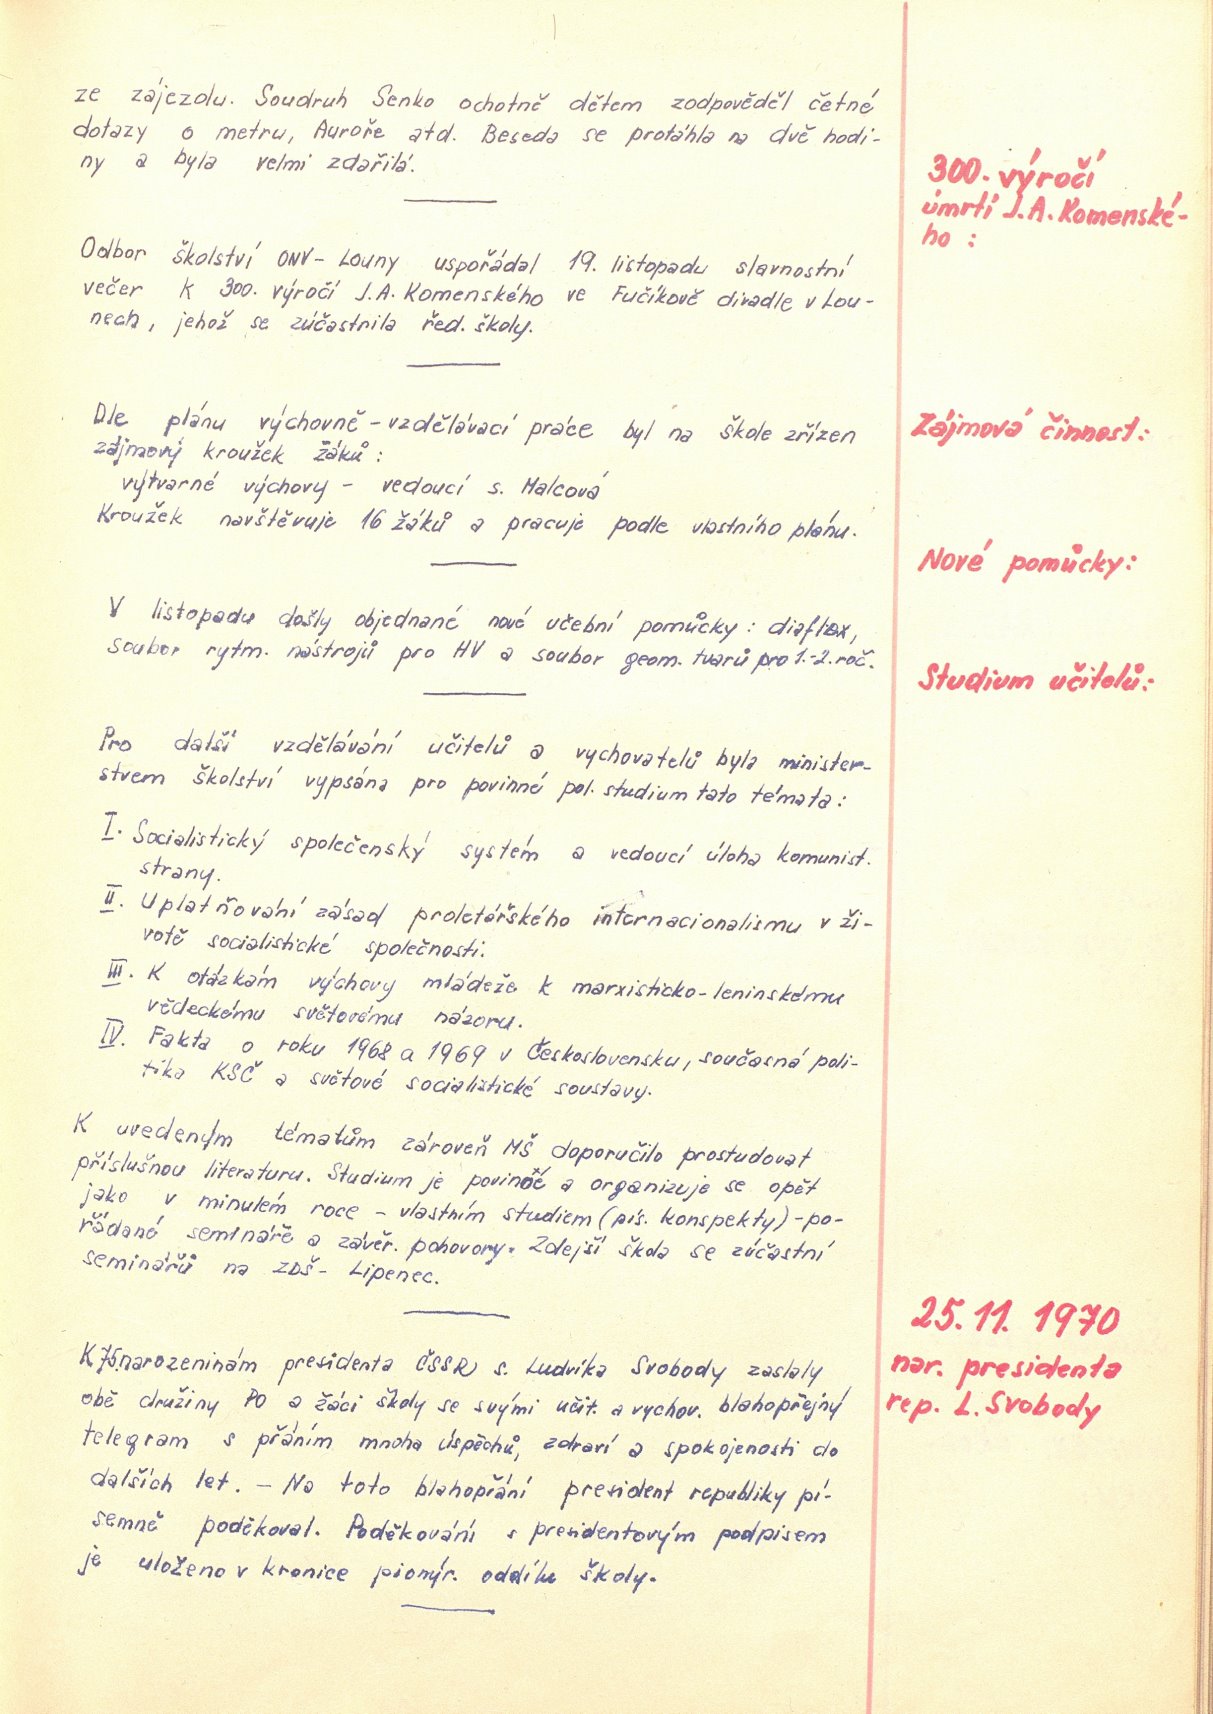 ze zájezdu. Soudruh Senko ochotně dětem zodpověděl četné
dotazy o metru, Auroře atd. Beseda se protáhla na dvě hodi-
ny a byla velmi zdařilá.
300. výročí
úmrtí J.A. Komenské-
ho :
Odbor školství ONV - Louny uspořádal 19. listopadu slavnostní
večer k 300. výročí J.A. Komenského ve Fučíkově divadle v Lou-
nech, jehož se zúčastnila řed. školy.
Zájmová činnost:
Dle plánu výchovně - vzdělávací práce byl na škole zřízen
zájmový kroužek žáků :
výtvarné výchovy - vedoucí s. Malcová
Kroužek navštěvuje 16 žáků a pracuje podle vlastního plánu.
Nové pomůcky:
V listopadu došly objednané nové učební pomůcky : diaflex,
soubor rytm. nástrojů pro HV a soubor geom. tvarů pro 1.-2. roč.
Studium učitelů:
Pro další vzdělávání učitelů a vychovatelů byla minister-
stvem školství vypsána pro povinné pol. studium tato témata :
I. Socialistický společenský systém a vedoucí úloha komunist.
strany.
II. Uplatňování zásad proletářského internacionalismu v ži-
votě socialistické společnosti.
III. K otázkám výchovy mládeže k marxisticko-leninskému
vědeckému světovému názoru.
IV. Fakta o roku 1968 a 1969 v Československu, současná poli-
tika KSČ a světové socialistické soustavy.
K uvedeným tématům zároveň MŠ doporučilo prostudovat
příslušnou literaturu. Studium je povinné a organizuje se opět
jako v minulém roce - vlastním studiem (pís. konspekty) - po-
řádané semináře a závěr. pohovory. Zdejší škola se zúčastní
seminářů na ZDŠ - Lipenec.
25. 11. 1970
nar. presidenta
rep. L. Svobody
K 75.narozeninám presidenta ČSSR s. Ludvíka Svobody zaslaly
obě družiny PO a žáci školy se svými učit. a vychov. blahopřejný
telegram s přáním mnoha úspěchů, zdraví a spokojenosti do
dalších let. - Na toto blahopřání president republiky pí-
semně poděkoval. Poděkování s presidentovým podpisem
je uloženo v kronice pionýr. oddílu školy.